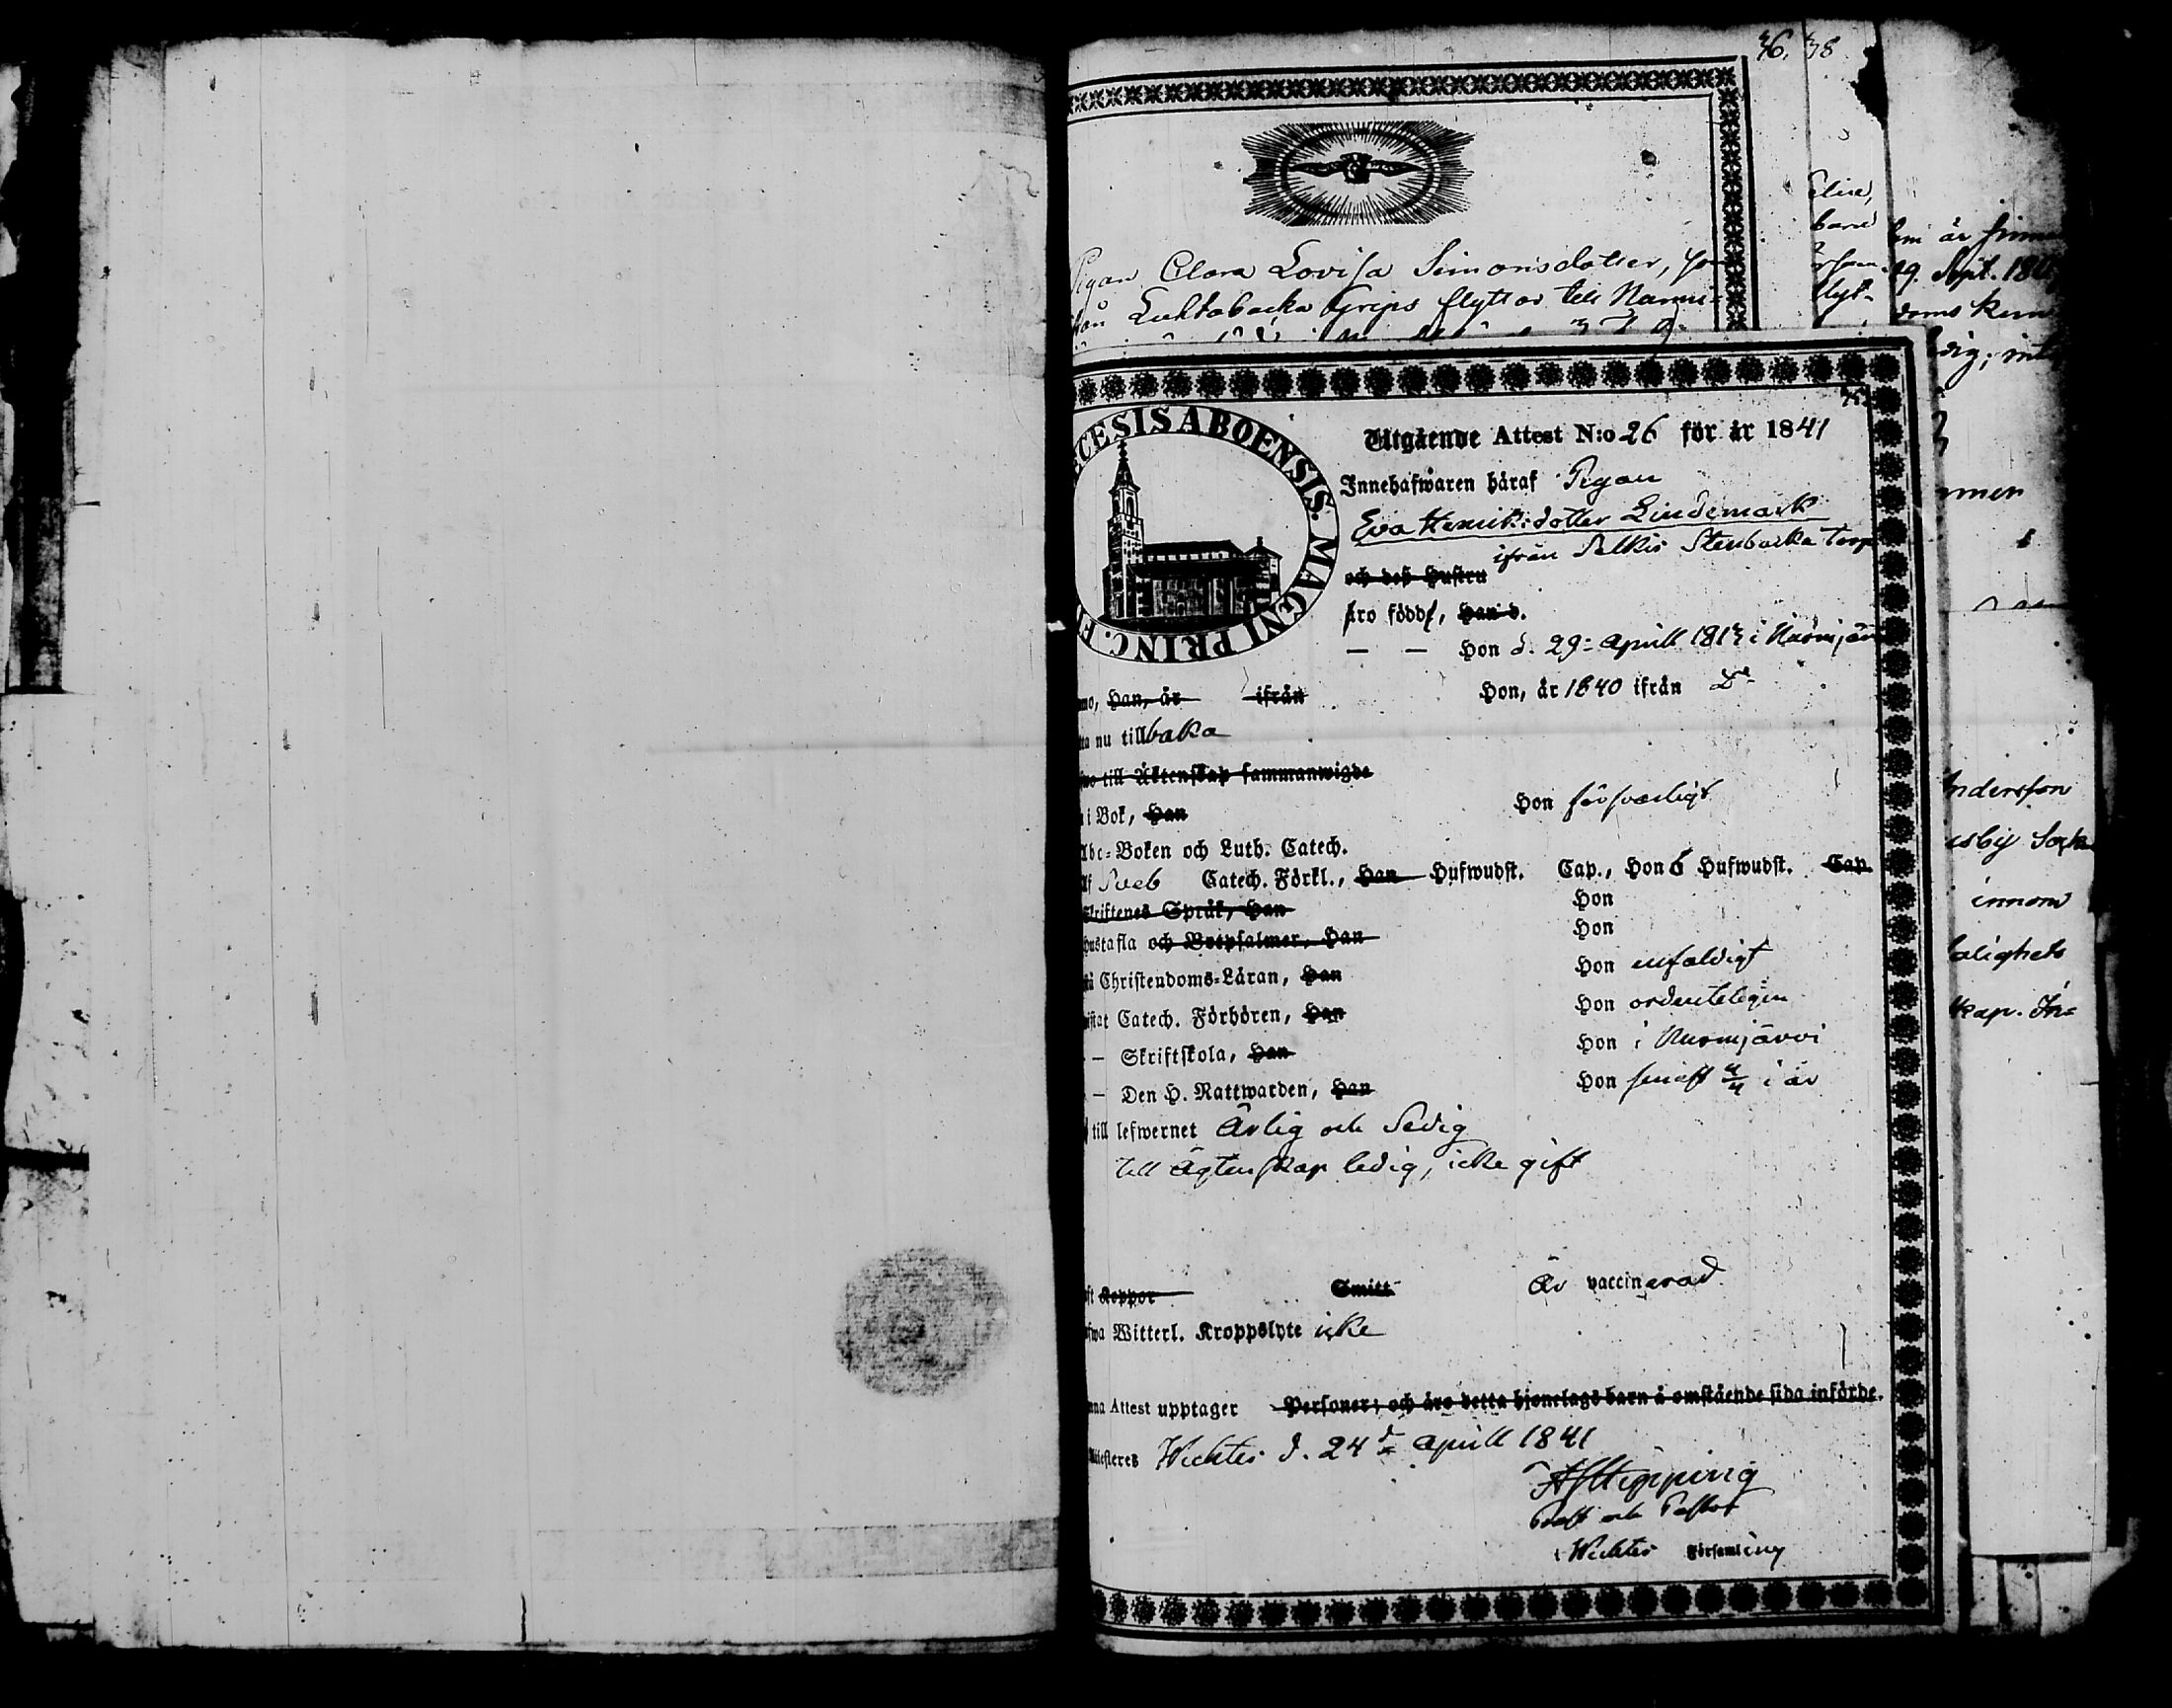 46. 48
Pigan Clara Lovisa Simonsdotter, som
från Luhtabacka Grips flyttar till Nurmi-
45.
ECESIS ABOENSIS. MAGNI PRINC. FI
Utgående Attest N:o 26 för år 1841
Innehafwaren häraf Pigan
Eva Henriksdotter Lindemark
ifrån Selkis Stenbacka Torp
och deß Hustru
äro född, Han d.
— — Hon d. 29 April 1813 i Nurmijärvi
mo, Han, år ifrån Hon, år 1840 ifrån Do
tta nu tillbaka
fwo till Äktenskap sammanwigde
i Bok, Han Hon försvarligt
Abc-Boken och Luth. Catech.
Af Sveb Catech. Förkl., Han Hufwudst. Cap., Hon 6 Hufwudst. Cap.
Skriftenes Språk, Han Hon
Hustafla och Botpsalmer, Han Hon
stå Christendoms-Läran, Han Hon enfaldigt
wistat Catech. Förhören, Han Hon ordenteligen
— Skriftskola, Han Hon i Nurmijärvi
— Den H. Nattwarden, Han Hon senast 4/4 i år
till lefwernet Ärlig och Sedig
till Ägtenskap ledig, icke gift
ft Koppor Smitt Är vaccinerad
fwa Witterl. Kroppslyte icke
nna Attest upptager Personer; och äro detta hjonelags barn å omstående sida införde.
Attesteres Wichtis d. 24 April 1841
Prost och Pastor
i Wichtis Församling
Elisa,
barn
flyt-
om är finn
29. Sept. 18
doms kun
edig, int
Andersson
usby Sock
innom
salighets
kap. In-